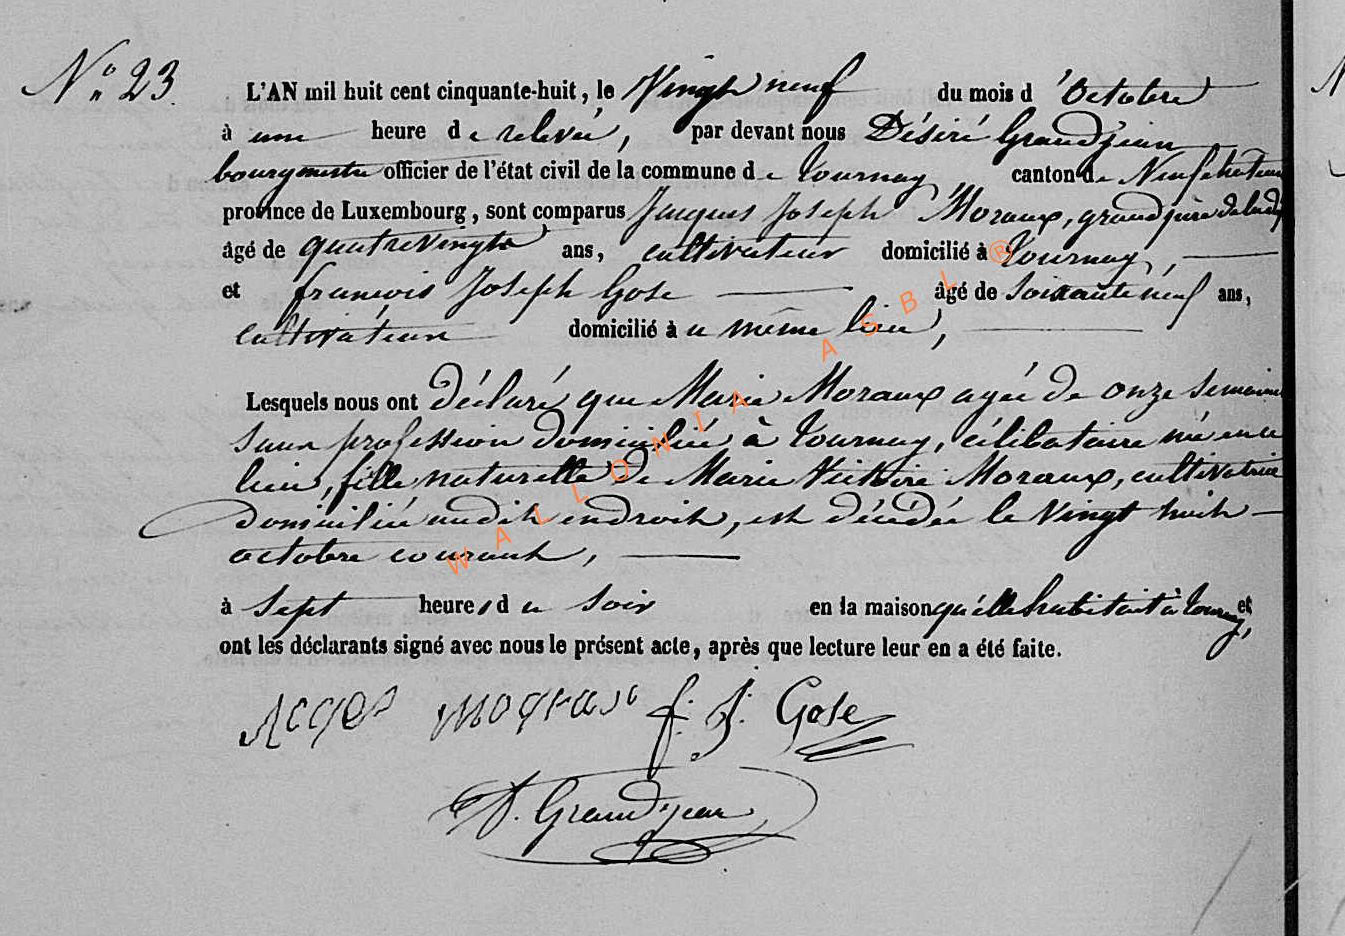 N° 23.
L'AN mil huit cent cinquante-huit, le Vingt neuf du mois d'Octobre
à une heure de relevée, par devant nous Désiré Grandjean
bourgmestre officier de l'état civil de la commune de Tournay, canton de Neufchateau
province de Luxembourg, sont comparus Jacques Joseph Moraux, grand père de la
âgé de quatrevingts ans, cultivateur domicilié à Tournay,
et françois Joseph Gose âgé de soixante neuf ans,
cultivateur domicilié à u même lieu,
Lesquels nous ont déclaré que Marie Moraux agée de onze semaines
sans profession domiciliée à Tournay, célibataire née en ce
lieu, fille naturelle de Marie Victoire Moraux, cultivatrice
domiciliée audit endroit, est décédée le Vingt huit
octobre courant,
à Sept heures du soir en la maison qu'elle habitait à Tournay, et
ont les déclarants signé avec nous le présent acte, après que lecture leur en a été faite.
f. J. Gose
D. Grandjean
WALLONIA ASBL ®